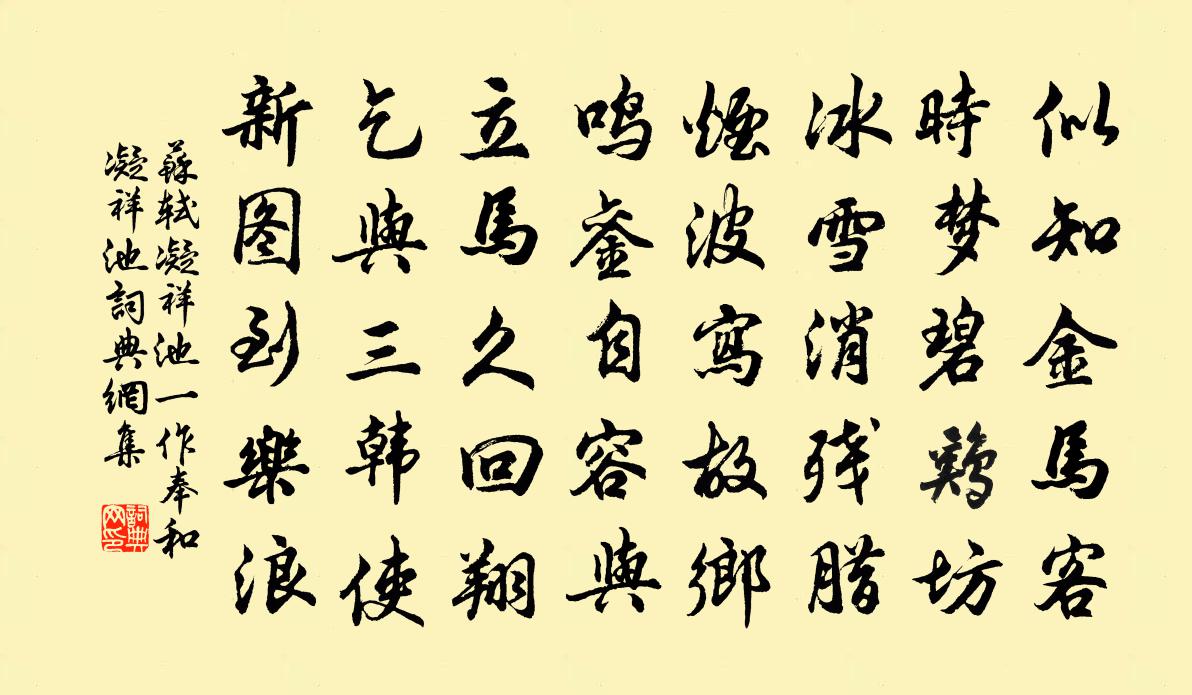 似知金馬客
時梦碧鷄坊
冰雪消残腊
煙波寫故鄉
鸣銮自容與
立馬久回翔
乞與三韩使
新图到樂浪
蘇軾凝祥池一作奉和
凝祥池詞典網集
詞典网印